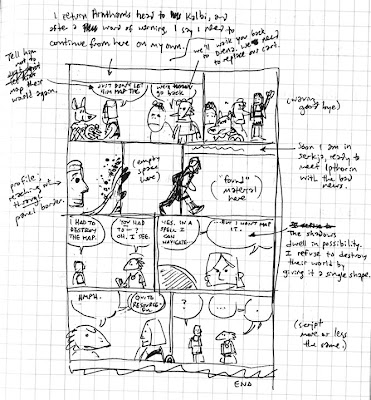 I return Arnthams head to Kalbi, and
after a word of warning, I say I need to
continue from here on my own.
we'll walk you back
to Diena. We need
to replace our cart.
Tell him
not to
map these
world again.
JUST DON'T LET
HIM MAP THE
go back
(waving
good bye)
soon I am in
Serkia, ready to
meet
with the bad
news.
(empty
space
here)
"found"
material
here
profile,
reaching out
through
panel border.
I HAD TO
DESTROY
THE MAP.
YOU HAD
TO — ?
OH. I SEE.
YES. IN A
SPELL I
CAN
NAVIGATE.
BUT I WON'T MAP
IT.
The shadows
dwell in possibility.
I refuse to destroy
their world by
giving it a single shape.
HMPH.
?
...
...
(script
more or less
the same.)
END